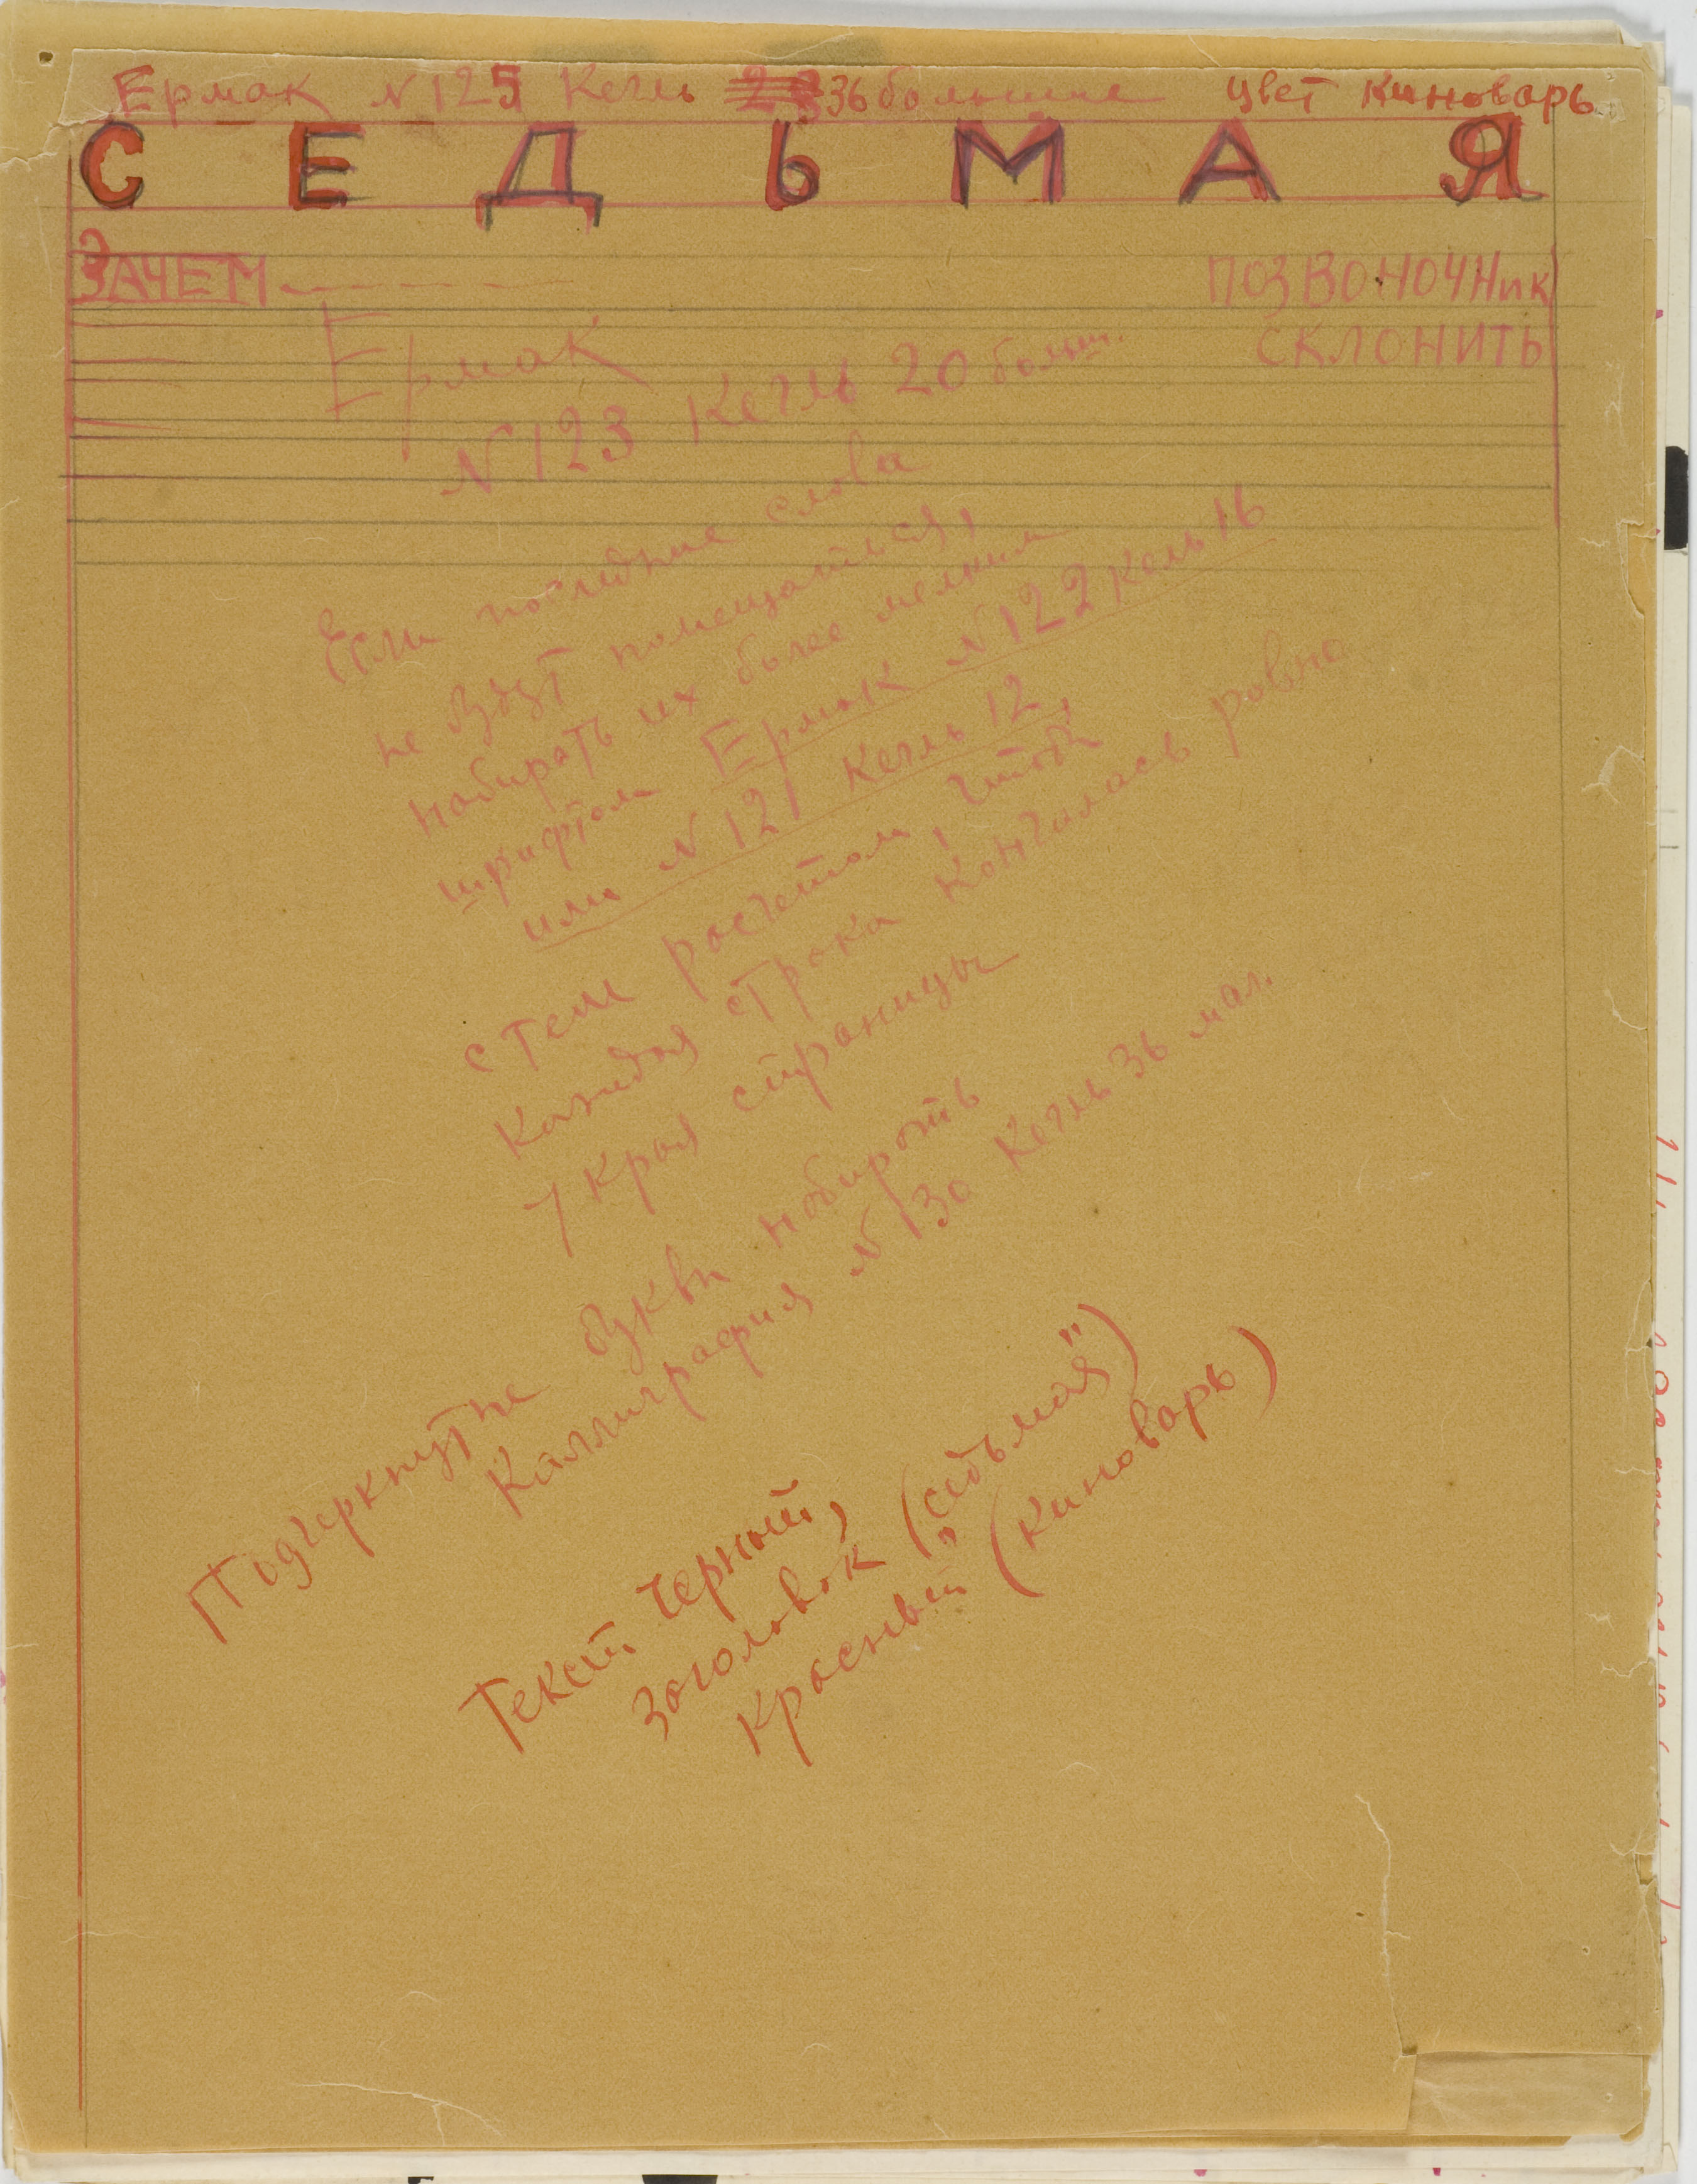 Ермак N 125 Кегль 36 большие цвет киноварь
СЕДЬМАЯ
ЗАЧЕМ — — — — — ПОЗВОНОЧНик
СКЛОНИТЬ
Ермак
N 123 Кегль 20 больш.
Если последние слова
не будут помещаться,
набирать их более мелким
шрифтом Ермак N 122 Кегль 16
или N 121 Кегль 12,
с тем расчетом, чтобы
каждая строка кончалась ровно
у края страницы
Подчеркнутые буквы набирать
Каллиграфия N 130 Кегль 36 мал.
Текст черный,
Заголовок („седьмая")
красный (киноварь)